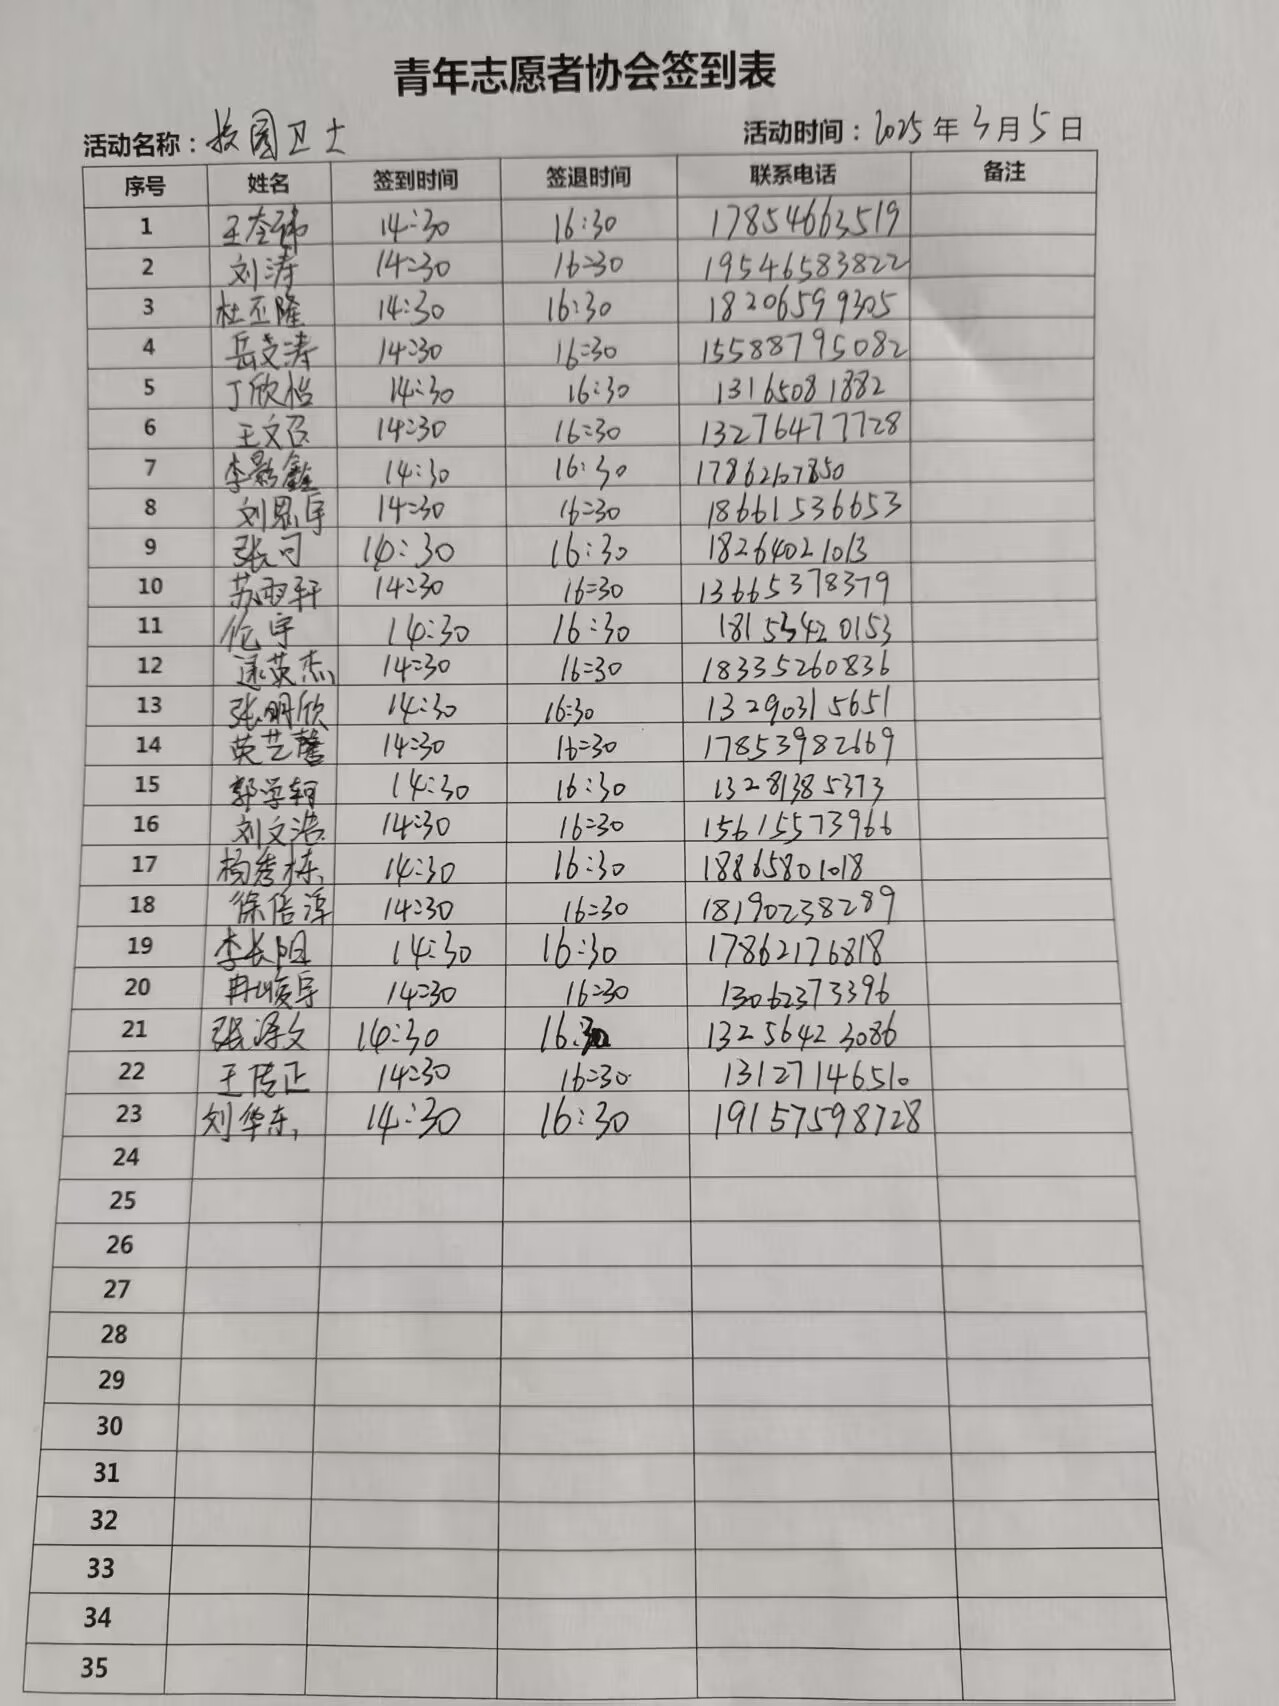 青年志愿者协会签到表
活动名称：校园卫士 活动时间：2025年3月5日
序号 姓名 签到时间 签退时间 联系电话 备注
1 14:30 16:30 17854663519
2 刘涛 14:30 16:30 19546583822
3 杜丕隆 14:30 16:30 18206599305
4 岳文涛 14:30 16:30 15588795082
5 丁欣怡 14:30 16:30 13165081882
6 王文召 14:30 16:30 13276477728
7 李影鑫 14:30 16:30 17862107850
8 刘恩宇 14:30 16:30 18661536653
9 张可 14:30 16:30 18264021013
10 苏雨轩 14:30 16:30 13665378379
11 伦宇 14:30 16:30 18153420153
12 逯英杰 14:30 16:30 18335260836
13 张明欣 14:30 16:30 13290315651
14 英艺馨 14:30 16:30 17853982669
15 郭学轲 14:30 16:30 13281385373
16 刘文浩 14:30 16:30 15615573966
17 杨秀栋 14:30 16:30 18865801018
18 徐倍淳 14:30 16:30 18190238289
19 李长阳 14:30 16:30 17862176818
20 冉峻宇 14:30 16:30 13062373396
21 张泽文 14:30 16:30 13256423086
22 王传正 14:30 16:30 13127146510
23 刘华东 14:30 16:30 19157598728
24
25
26
27
28
29
30
31
32
33
34
35